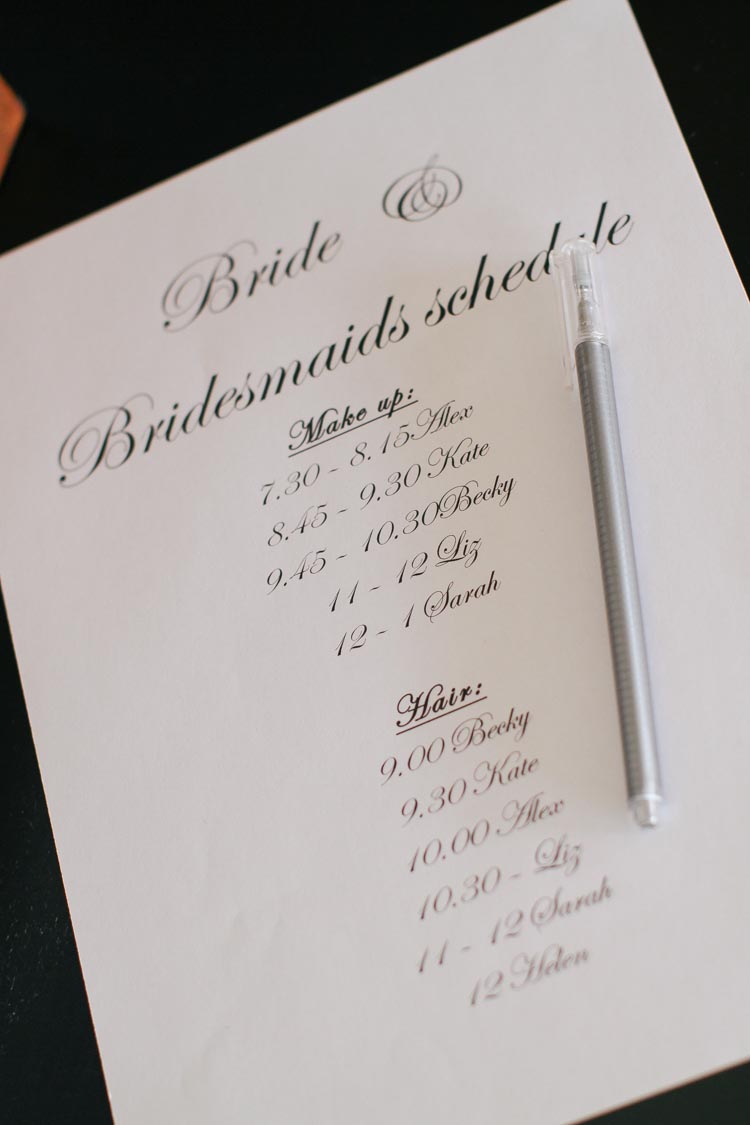 Bride &
Bridesmaids schedule
Make up:
7.30 - 8.15 Alex
8.45 - 9.30 Kate
9.45 - 10.30 Becky
11 - 12 Liz
12 - 1 Sarah
Hair:
9.00 Becky
9.30 Kate
10.00 Alex
10.30 - Liz
11 - 12 Sarah
12 Helen